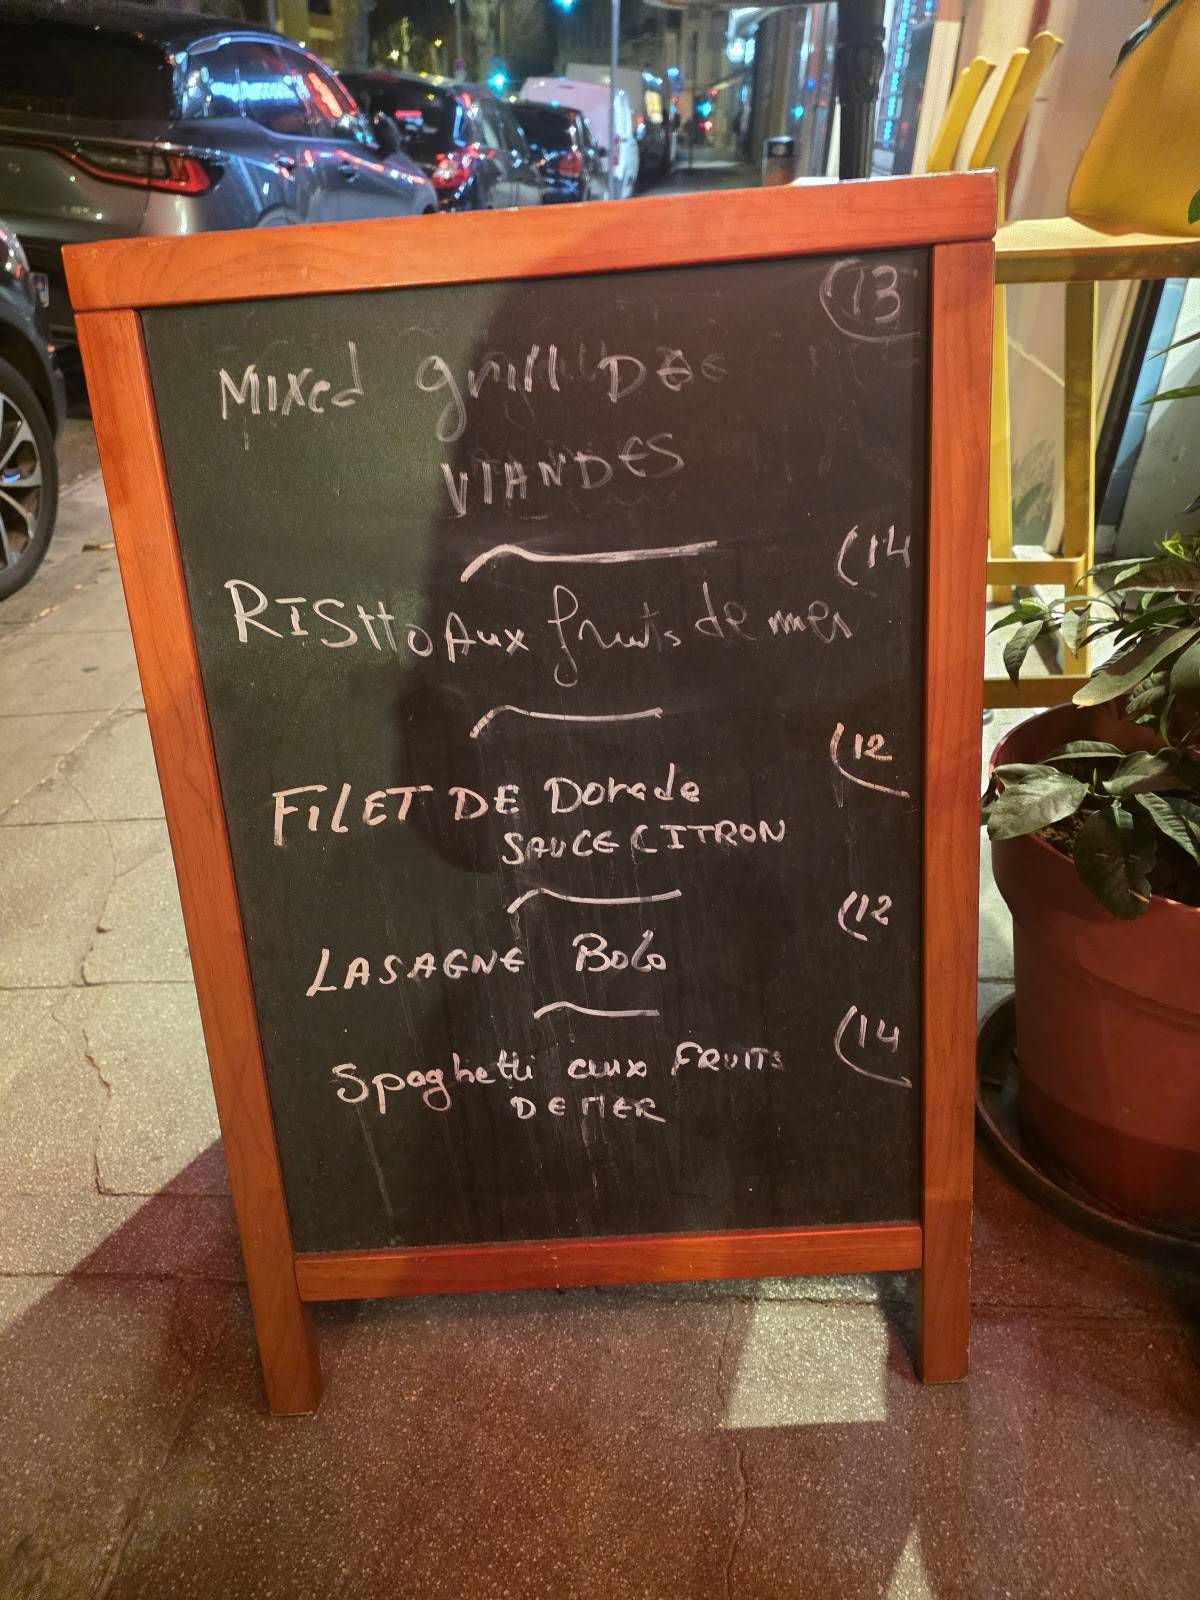 13
MIXed grill Des
VIANDES
14
RISttO AUX fruits de mer
12
FILET DE Dorade
SAUCE CITRON
12
LASAGNE Bolo
14
Spaghetti aux FRUITS
DE MER